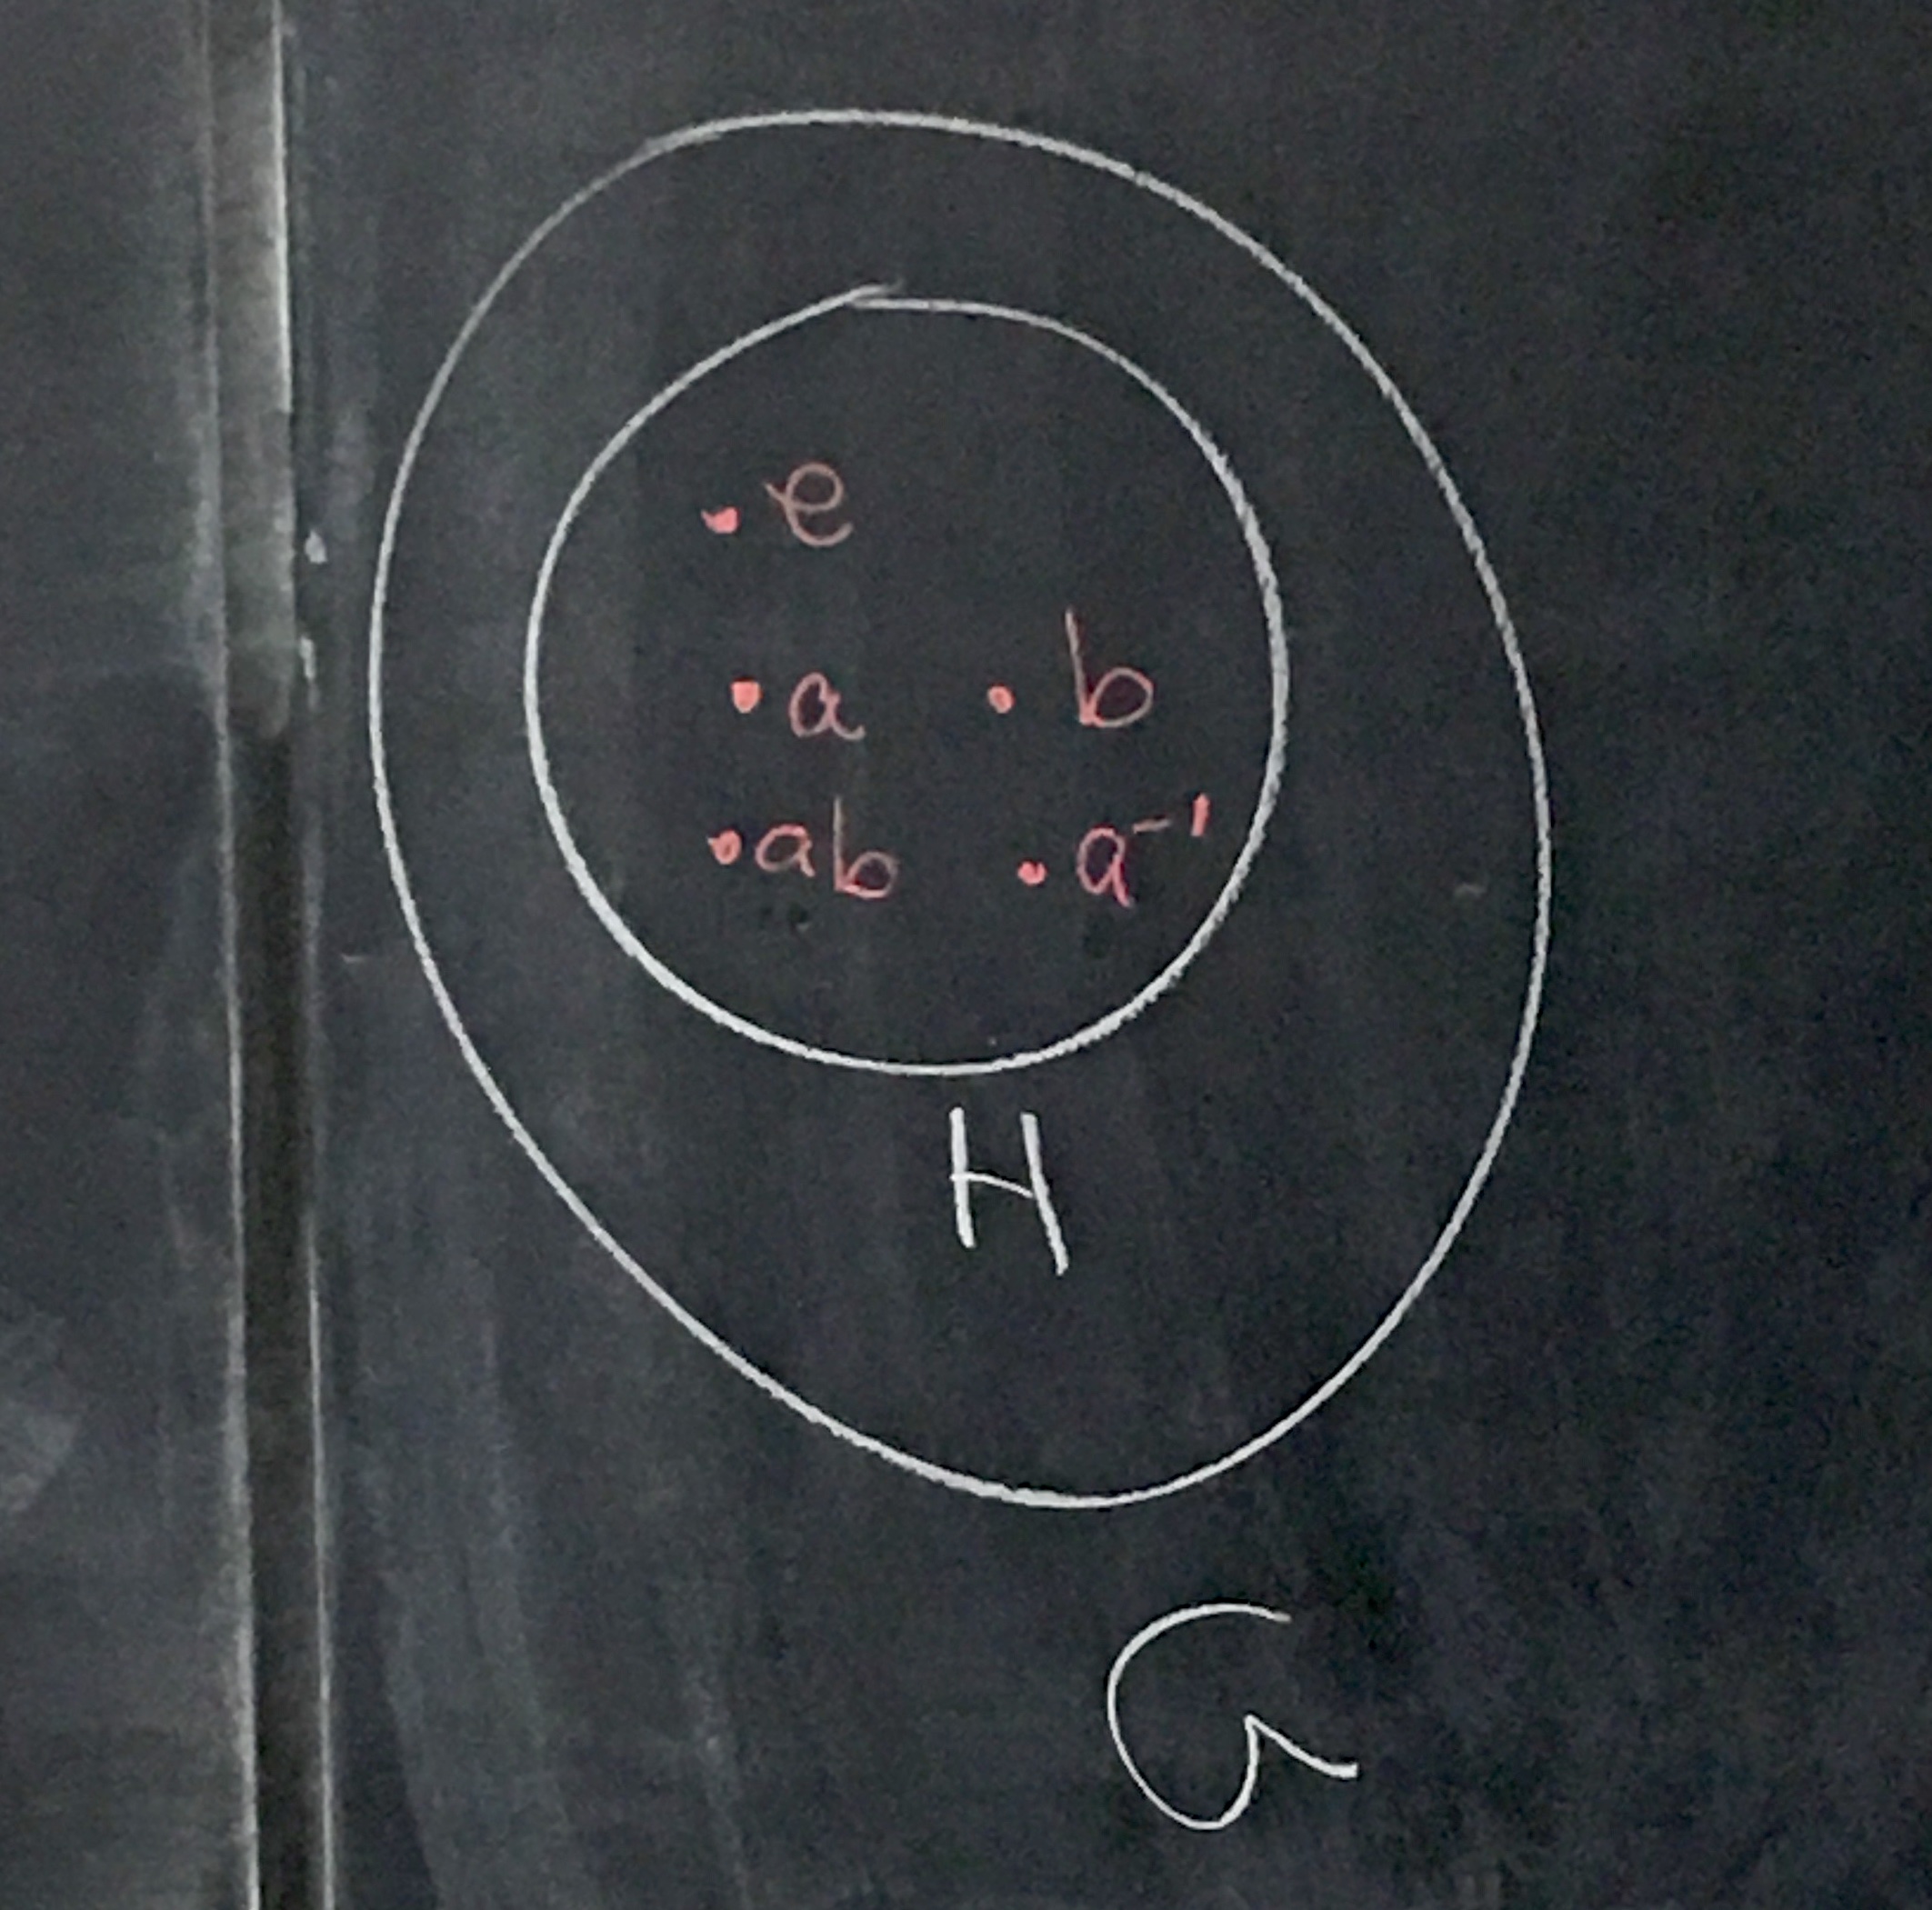 e
a b
ab a⁻¹
H
G